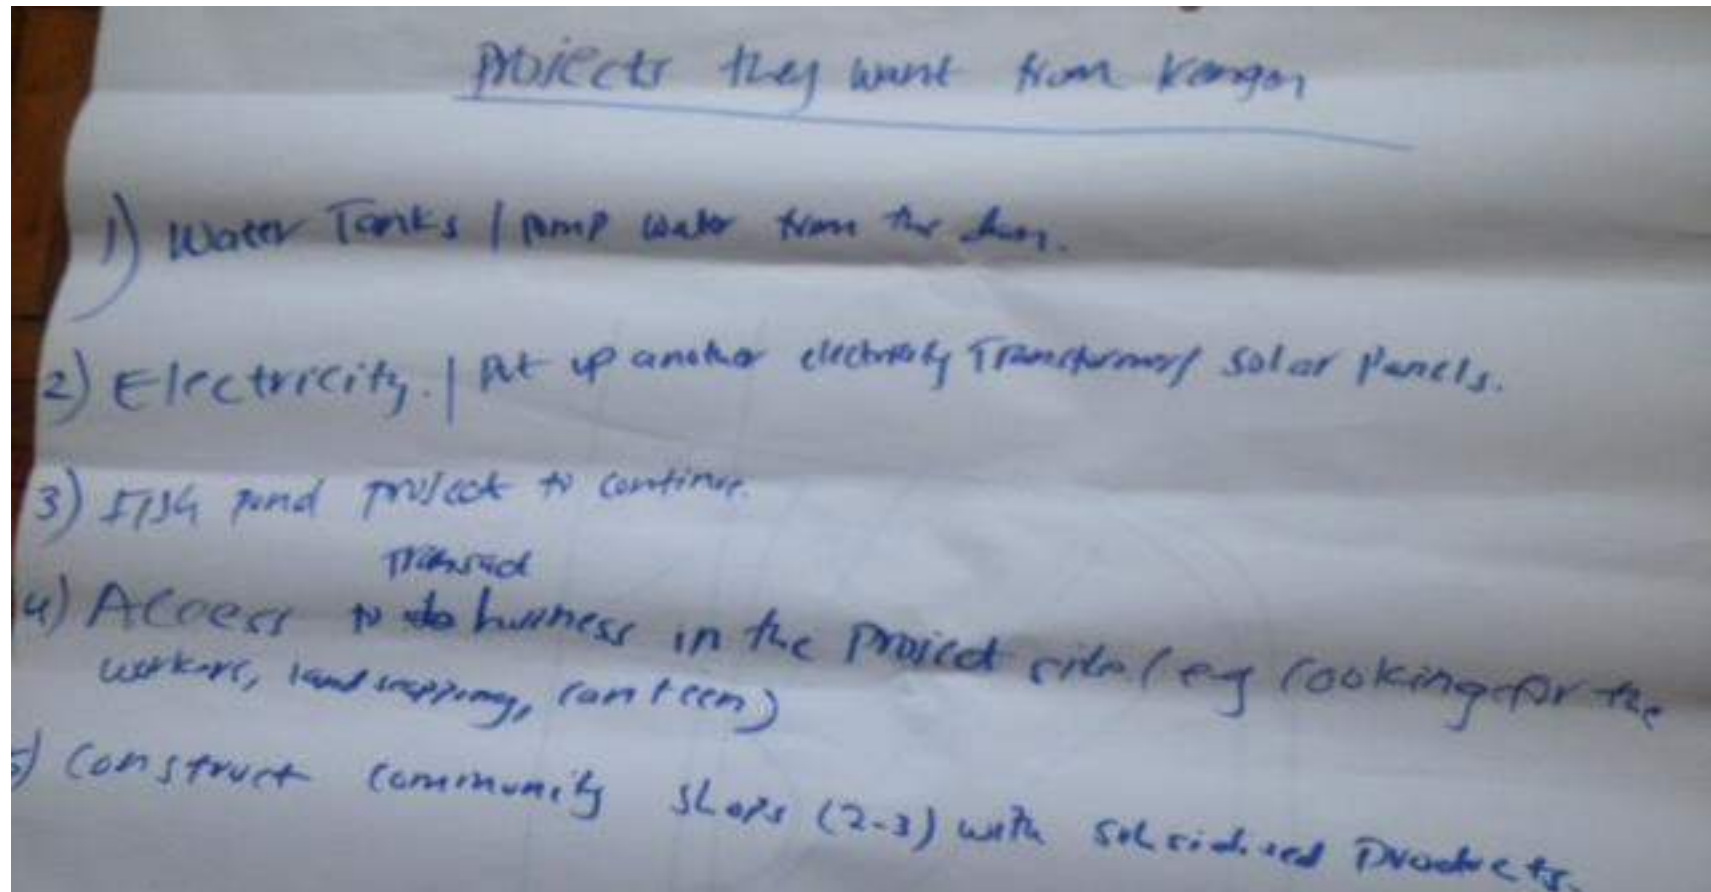 Projects they want from Kengen
1) Water Tanks / pump water from the dam.
2) Electricity. / Put up another electricity Transformer / Solar Panels.
3) Fish pond project to continue.
transact
4) Access to do business in the project site (eg cooking for the
workers, landscapping, canteen)
5) Construct community shops (2-3) with subsidised products.